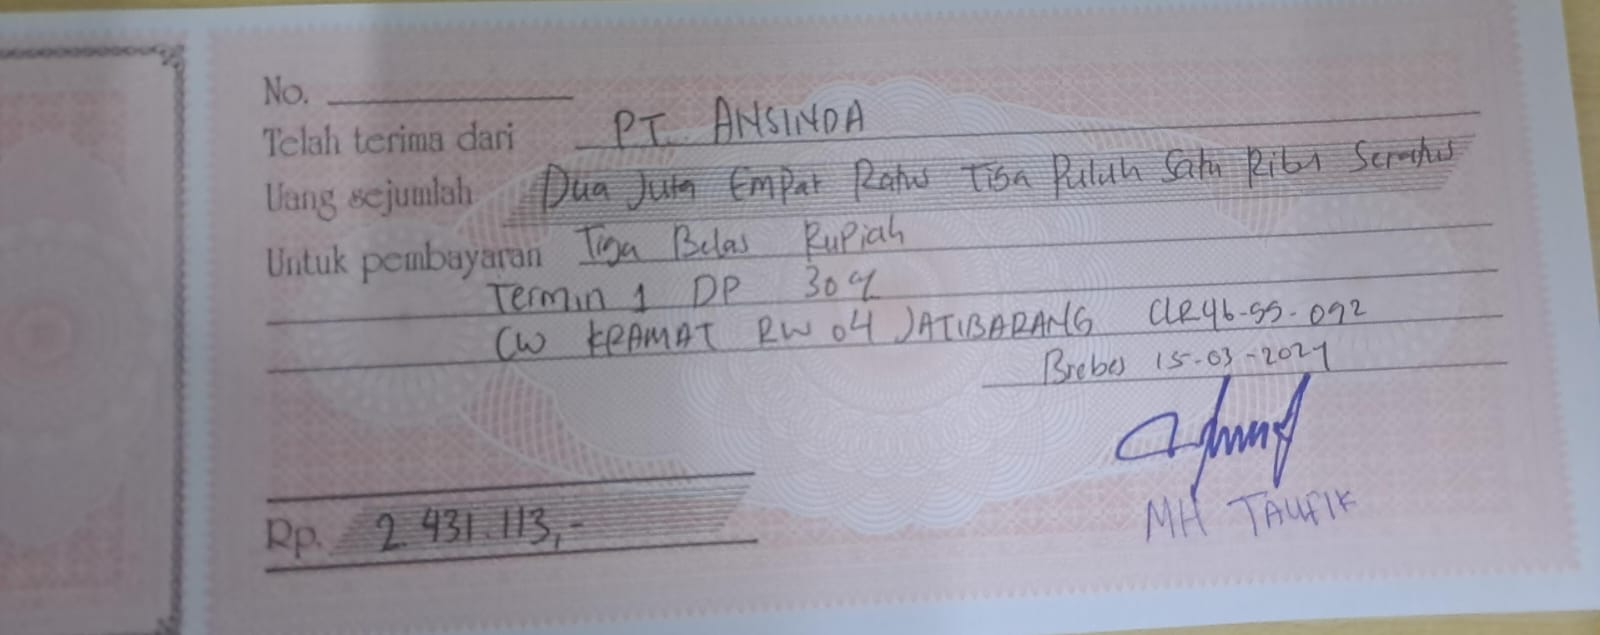 No.
Telah terima dari PT. ANSINDA
Uang sejumlah Dua Juta Empat Ratus Tiga Puluh Satu Ribu Seratus
Untuk pembayaran Tiga Belas Rupiah
Termin 1 DP 30%
CW KRAMAT RW 04 JATIBARANG
Brebes 15-03-2021
Rp. 2.431.113,-
MH TAUFIK